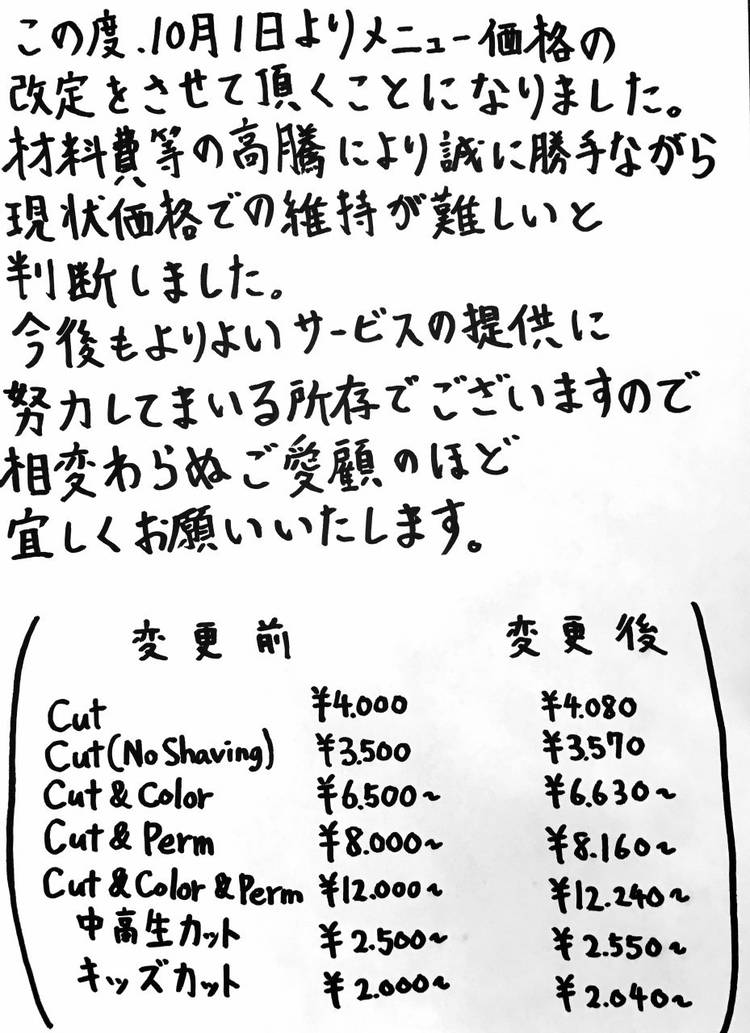 この度、10月1日よりメニュー価格の
改定をさせて頂くことになりました。
材料費等の高騰により誠に勝手ながら
現状価格での維持が難しいと
判断しました。
今後もよりよいサービスの提供に
努力してまいる所存でございますので
相変わらぬご愛顧のほど
宜しくお願いいたします。
変更前 変更後
Cut ¥4.000 ¥4.080
Cut(No Shaving) ¥3.500 ¥3.570
Cut & Color ¥6.500~ ¥6.630~
Cut & Perm ¥8.000~ ¥8.160~
Cut & Color & Perm ¥12.000~ ¥12.240~
中高生カット ¥2.500~ ¥2.550~
キッズカット ¥2.000~ ¥2.040~